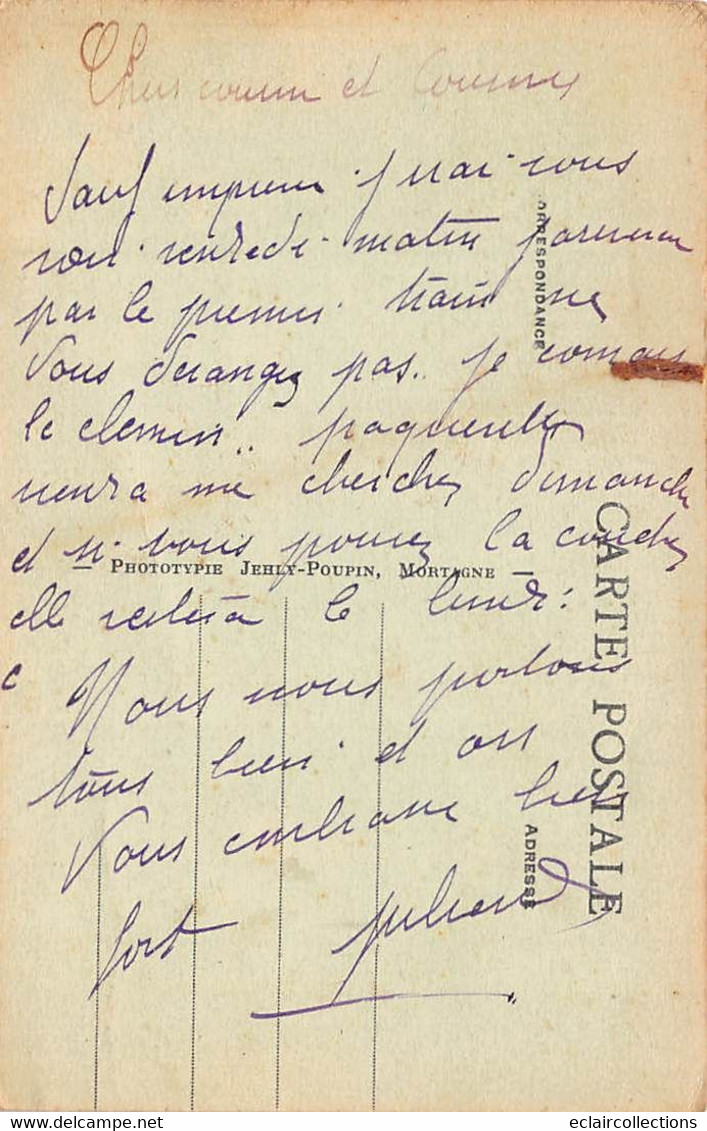 Chers cousin et Cousine
Sauf imprevu j irai vous
voir vendredi matin
par le premier train ne
Vous derangez pas.. je connais
le chemin..
viendra me cherchez dimanche
et si vous pouvez la couchez
elle restera le lundi :
Nous nous portons
tous bien et on
Vous embrasse bien
fort
CORRESPONDANCE
— Phototypie Jehly-Poupin, Mortagne —
CARTE POSTALE
ADRESSE
eclaircollections